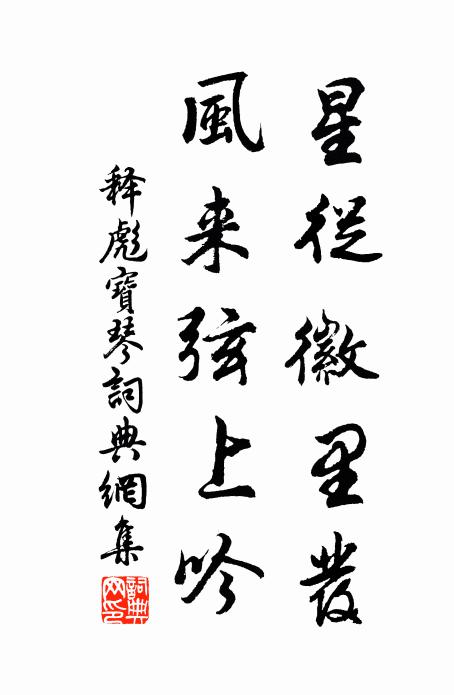 星從徽里發
風来弦上吟
释彪寶琴詞典網集
詞典
网印